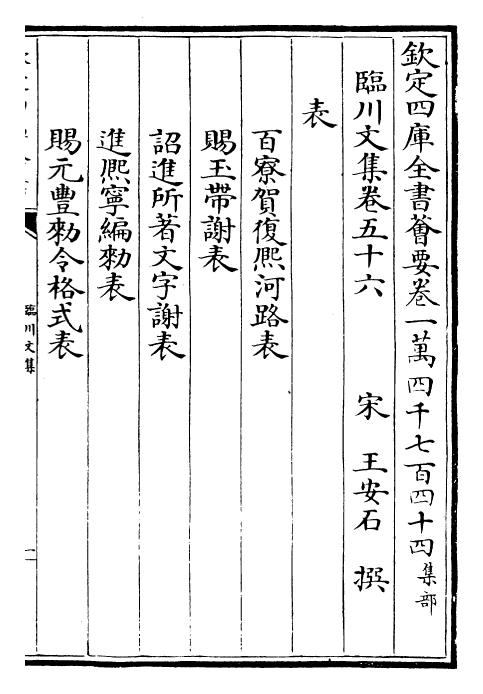 欽定四庫全書薈要卷一萬四千七百四十四集部
臨川文集卷五十六 宋 王安石 撰
表
百寮賀復熈河路表
賜玉帶謝表
詔進所著文字謝表
進熈寧編勑表
賜元豐勑令格式表
臨川文集
一